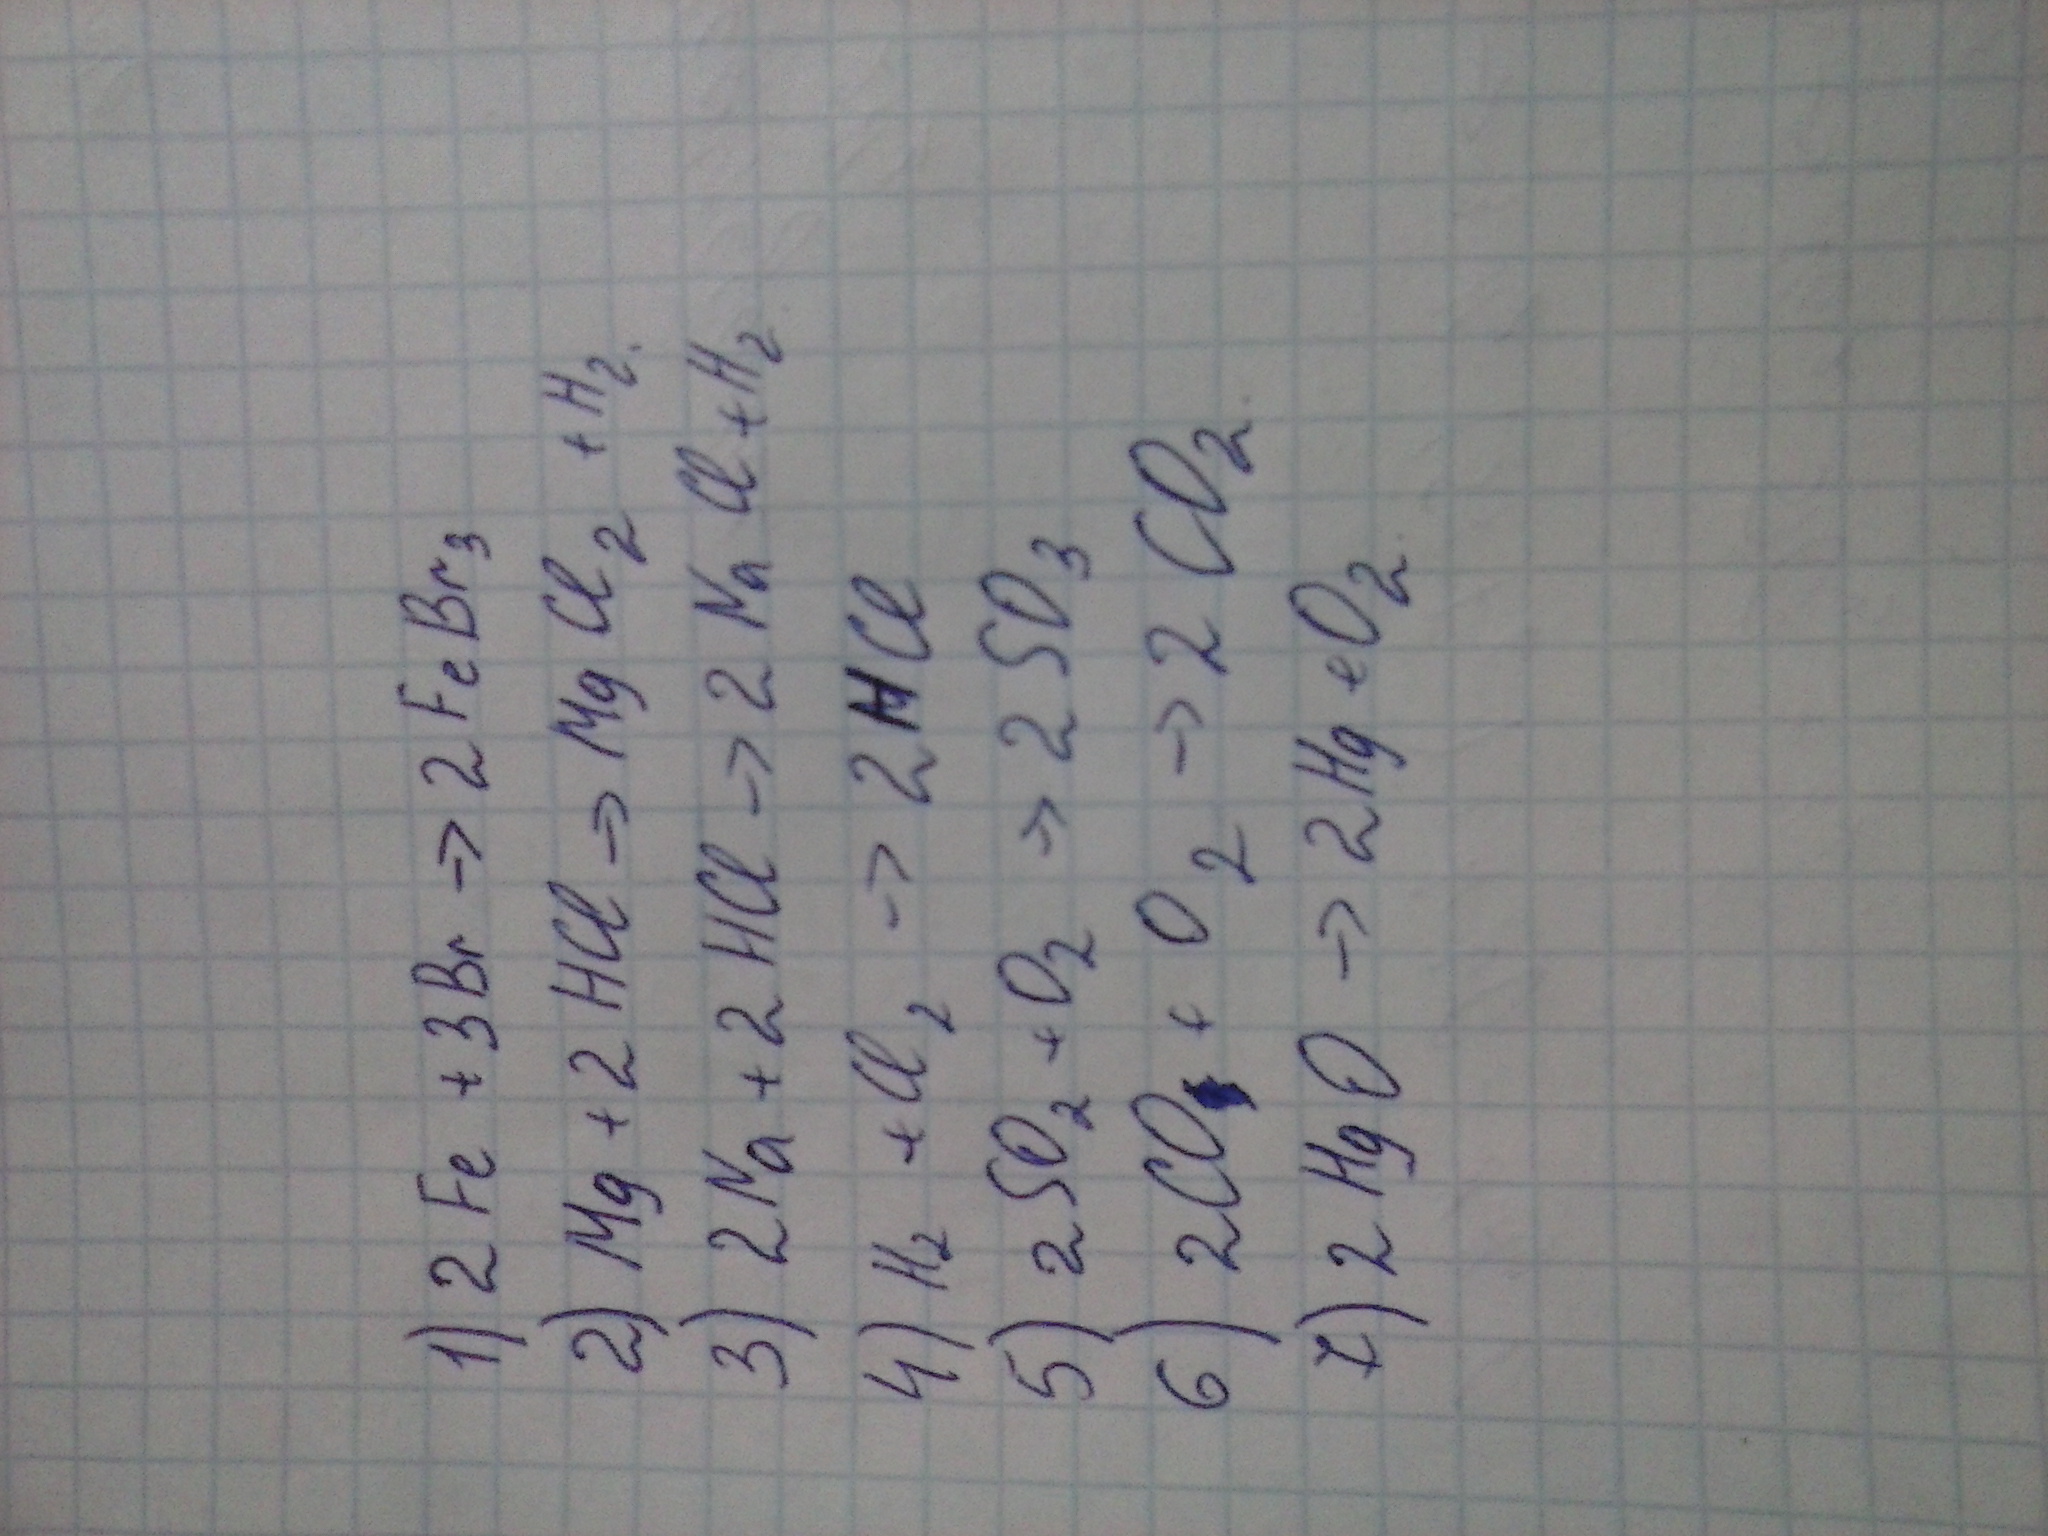 1) 2Fe + 3Br → 2FeBr₃
2) Mg + 2HCl → MgCl₂ + H₂.
3) 2Na + 2HCl → 2NaCl + H₂
4) H₂ + Cl₂ → 2HCl
5) 2SO₂ + O₂ → 2SO₃
6) 2CO + O₂ → 2CO₂.
7) 2HgO → 2Hg + O₂